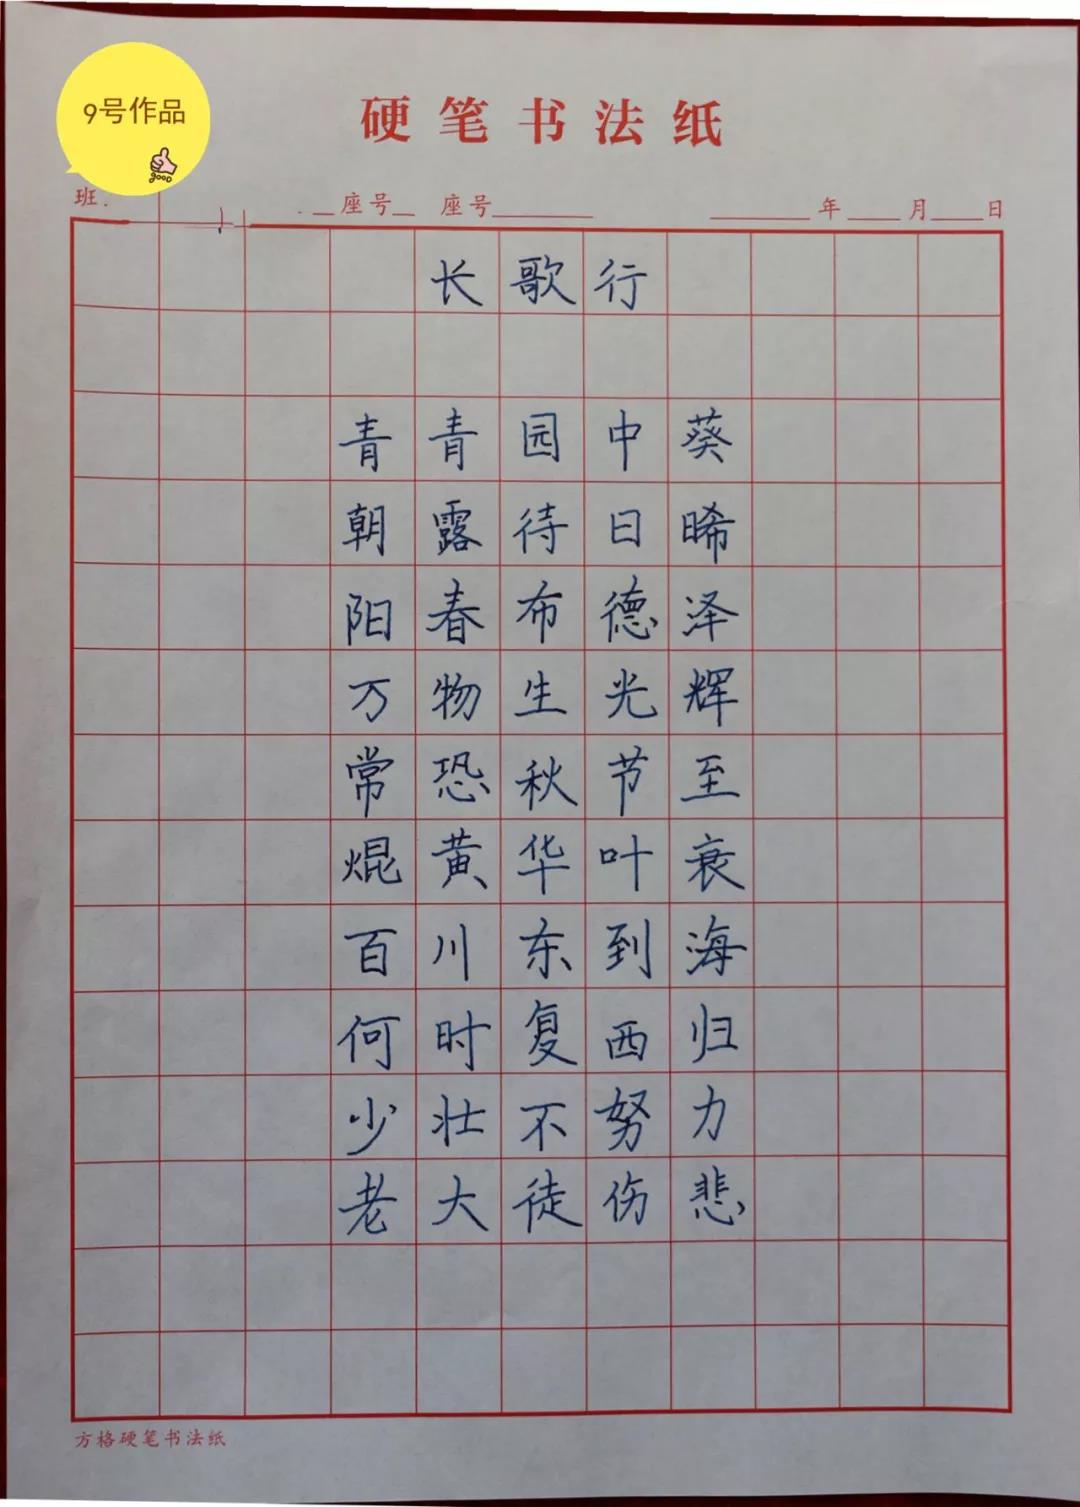 9号作品
硬笔书法纸
班 座号 座号 年 月 日
长歌行
青青园中葵
朝露待日晞
阳春布德泽
万物生光辉
常恐秋节至
焜黄华叶衰
百川东到海
何时复西归
少壮不努力
老大徒伤悲
方格硬笔书法纸